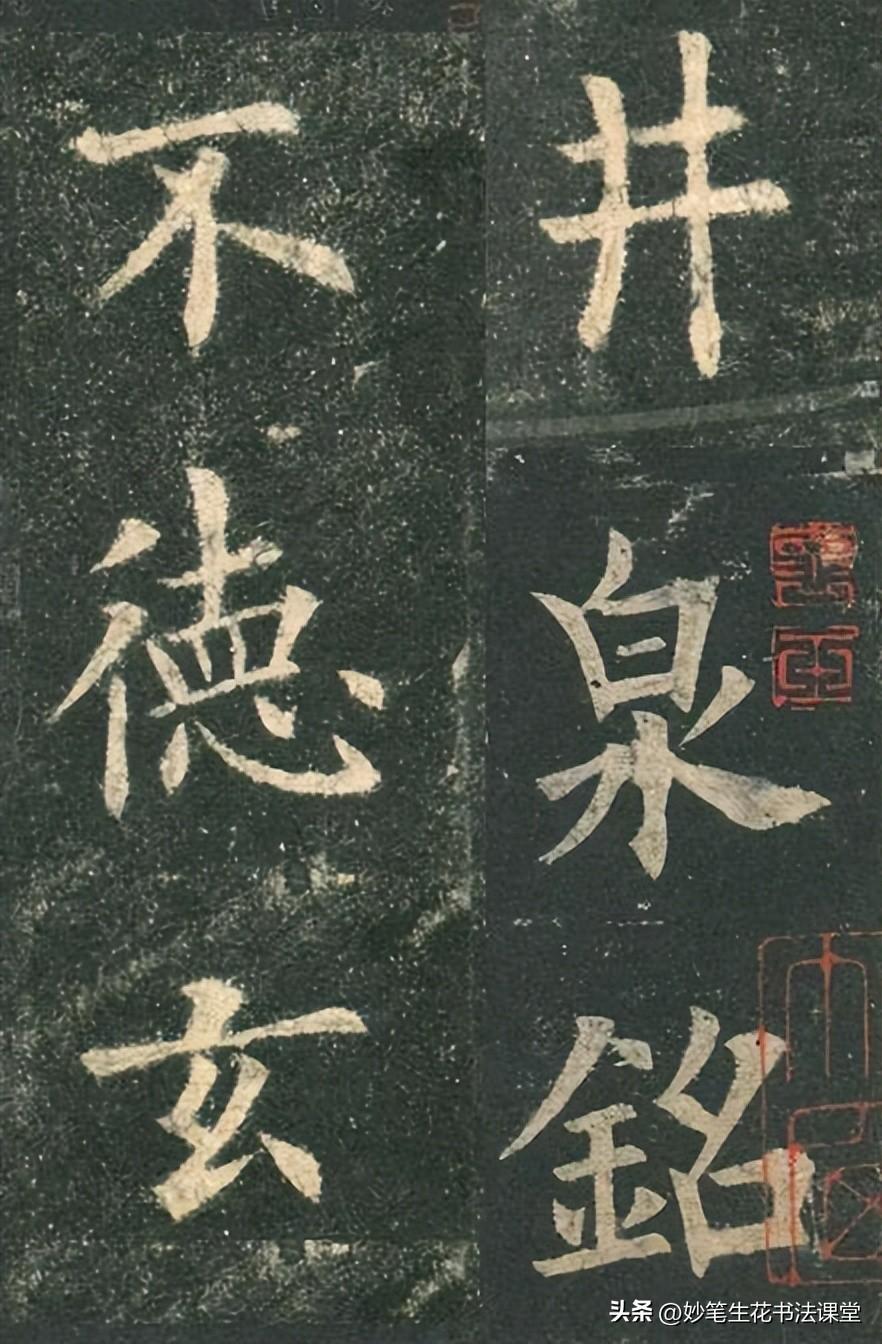 井泉銘
不德玄
头条 @妙笔生花书法课堂